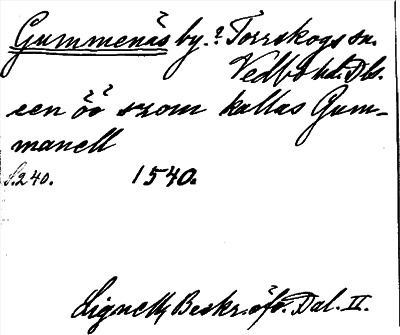 Gummenäs by.? Torrskogs sn.
Vedbo hd. Dls.
een öö szom kallas Gum-
manell
S.240. 1540.
Lignell, Beskr. öfv. Dal. II.